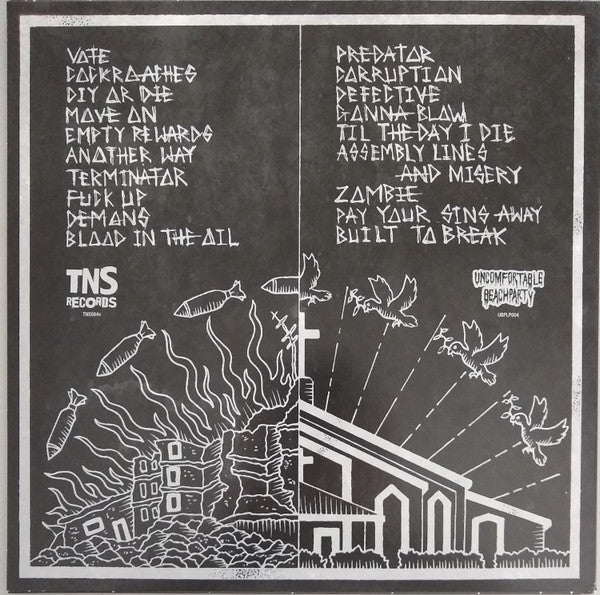 VOTE
COCKROACHES
DIY OR DIE
MOVE ON
EMPTY REWARDS
ANOTHER WAY
TERMINATOR
FUCK UP
DEMONS
BLOOD IN THE OIL
TNS
RECORDS
TNS084v
PREDATOR
CORRUPTION
DEFECTIVE
GONNA BLOW
TIL THE DAY I DIE
ASSEMBLY LINES
AND MISERY
ZOMBIE
PAY YOUR SINS AWAY
BUILT TO BREAK
UNCOMFORTABLE
BEACHPARTY
UBPLP004